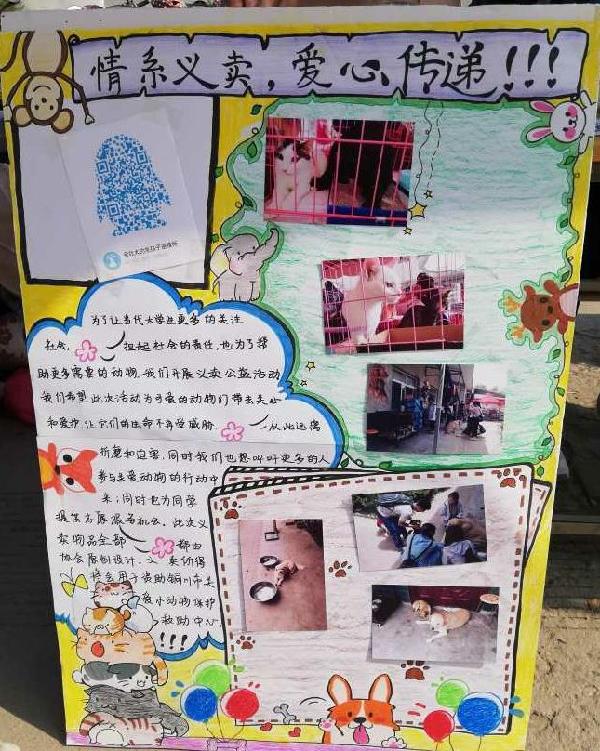 情系义卖，爱心传递!!!
为了让当代大学生更多的关注
社会，担起社会的责任，也为了帮
助更多需要的动物，我们开展义卖公益活动
我们希望此次活动为可爱的动物们带去关心
和爱护，让它们的生命不再受威胁，从此远离
折磨和迫害，同时我们也想呼吁更多的人
参与关爱动物的行动中
来，同时也为同学
提供志愿服务机会，此次义
卖物品全部都由
协会原创设计，义卖所得
将会用于资助铜川市关
爱小动物保护
救助中心
!!!